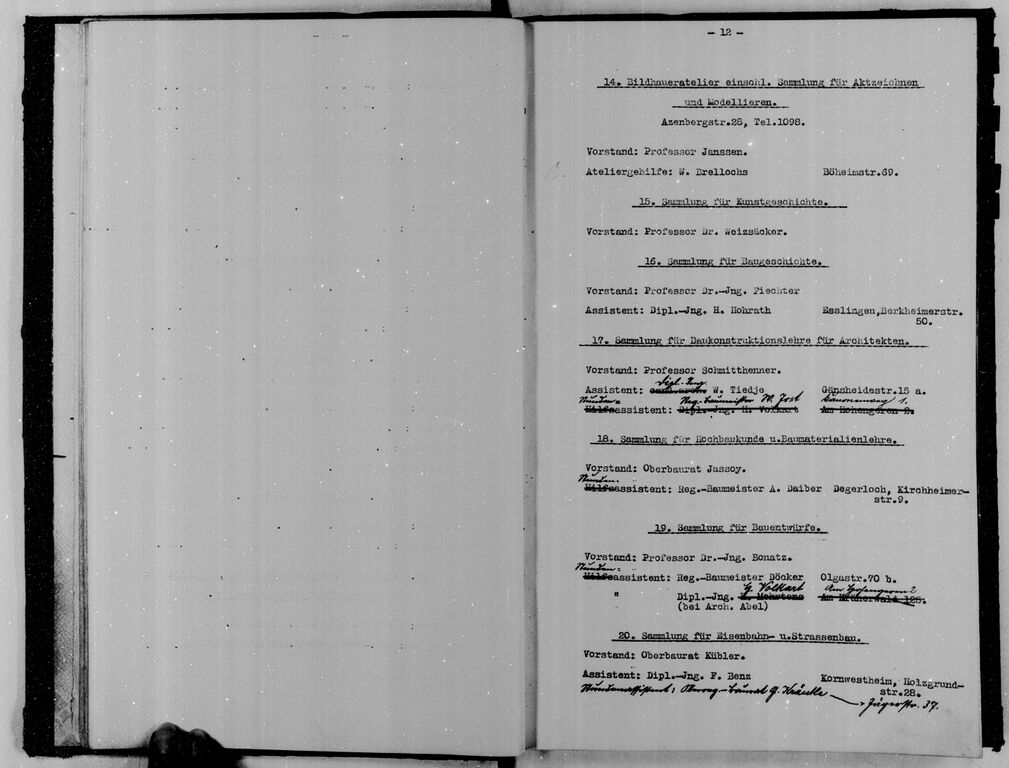 - 12 -
14. Bildhaueratelier einschl. Sammlung für Aktzeichnen
und Modellieren.
Azenbergstr.28, Tel.1098.
Vorstand: Professor Janssen.
Ateliergehilfe: W. Brellochs Böheimstr.69.
15. Sammlung für Kunstgeschichte.
Vorstand: Professor Dr. Weizsäcker.
16. Sammlung für Baugeschichte.
Vorstand: Professor Dr.-Jng. Fiechter
Assistent: Dipl.-Jng. H. Hohrath Esslingen,Berkheimerstr.
50.
17. Sammlung für Baukonstruktionslehre für Architekten.
Vorstand: Professor Schmitthenner.
Dipl.-Ing.
Assistent: cand.arch. W. Tiedje Gänsheidestr.15 a.
Stunden- Reg.-Baumeister W. Jost Kanonenweg 1.
Hilfsassistent: Dipl.-Jng. H. Volkart Am Hohengeren 2.
18. Sammlung für Hochbaukunde u.Baumaterialienlehre.
Vorstand: Oberbaurat Jassoy.
Stunden-
Hilfsassistent: Reg.-Baumeister A. Daiber Degerloch, Kirchheimer-
str.9.
19. Sammlung für Bauentwürfe.
Vorstand: Professor Dr.-Jng. Bonatz.
Stunden-
Hilfsassistent: Reg.-Baumeister Döcker Olgastr.70 b.
G. Volkart Am Hohengeren 2
" Dipl.-Jng. Mehrtens Am Kräherwald 125.
(bei Arch. Abel)
20. Sammlung für Eisenbahn- u.Strassenbau.
Vorstand: Oberbaurat Kübler.
Assistent: Dipl.-Jng. F. Benz Kornwestheim, Holzgrund-
str.28.
Stundenassistent: Oberreg.-baurat G. Kräutle Jägerstr. 37.